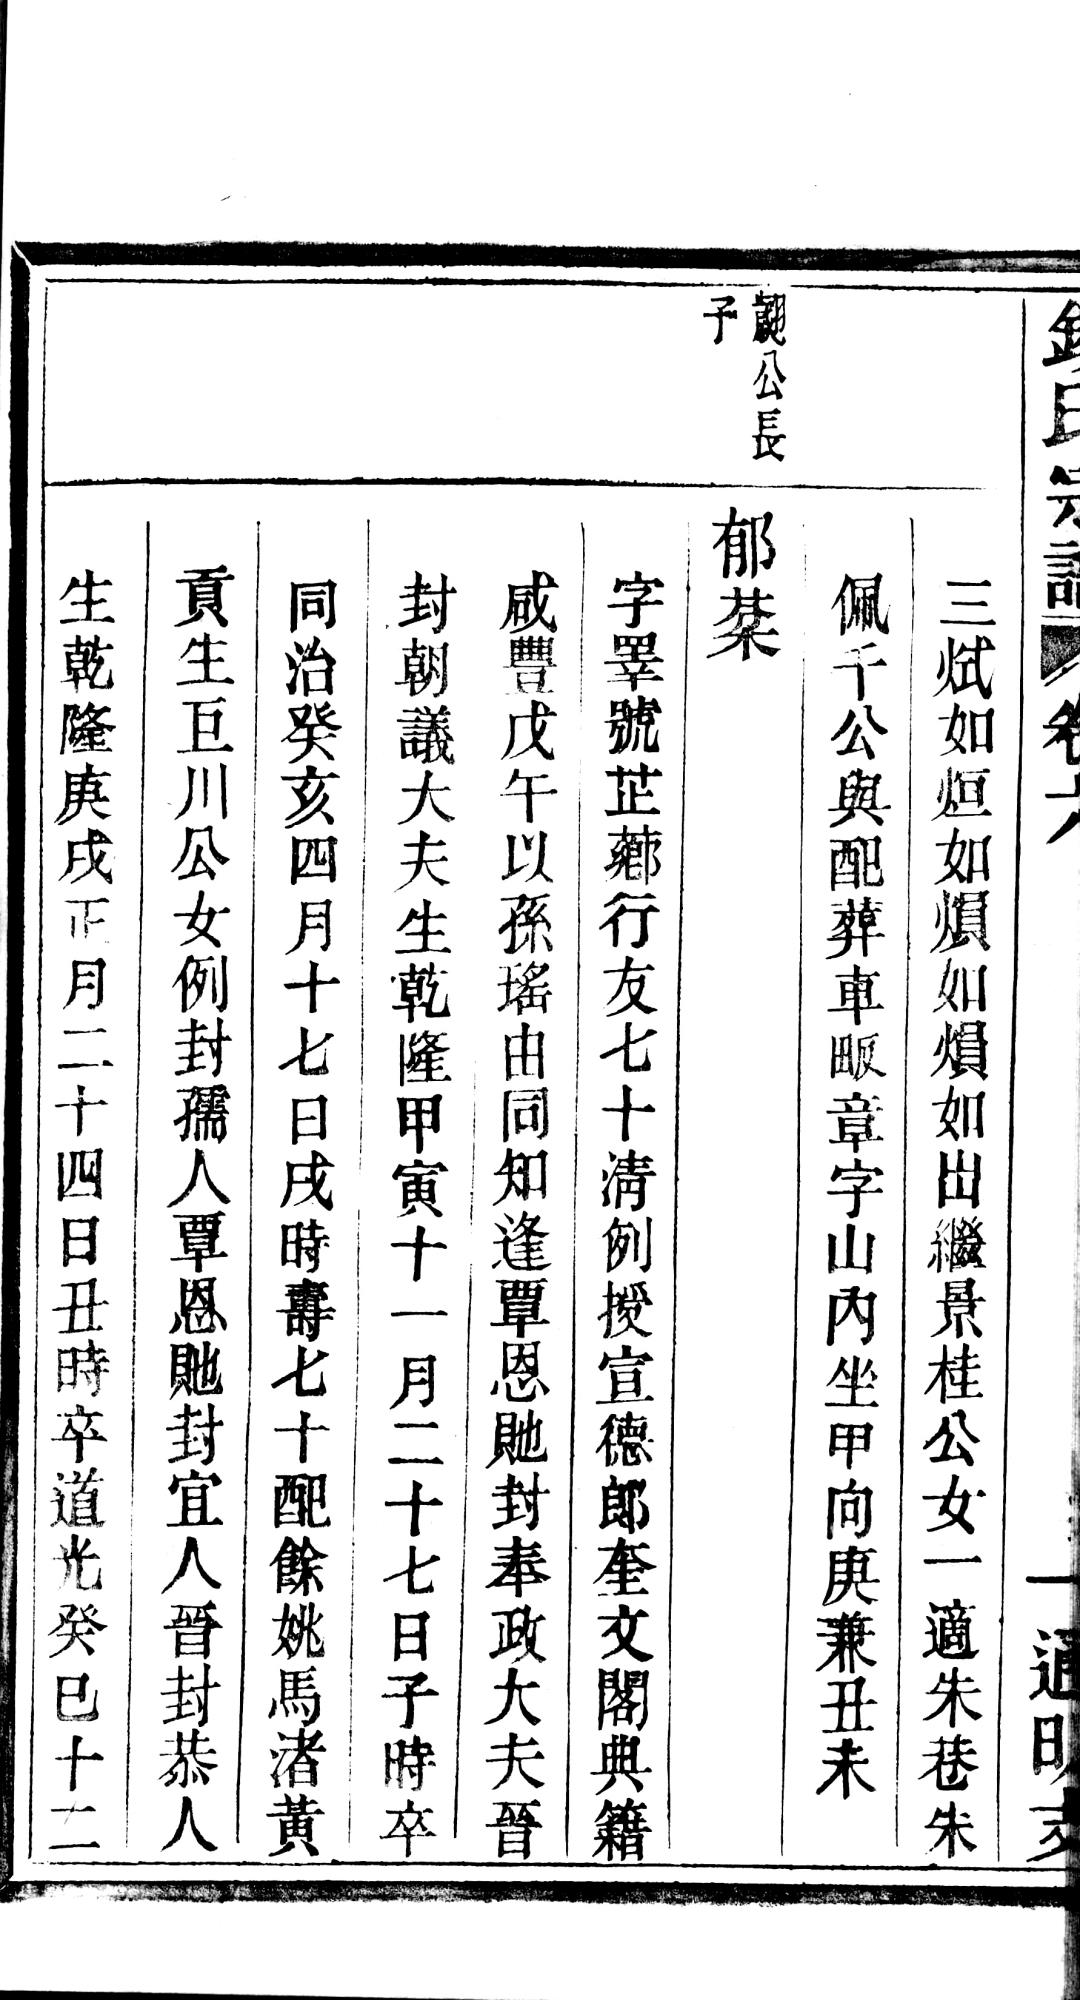 氏宗譜 卷六 一 通明支
三烒如烜如熉如熉如出繼景桂公女一適朱巷朱
佩千公與配葬車畈章字山內坐甲向庚兼丑未
公長
子
郁棻
字睪號芷薌行友七十淸例授宣德郎奎文閣典籍
咸豐戊午以孫瑤由同知逢覃恩貤封奉政大夫晉
封朝議大夫生乾隆甲寅十一月二十七日子時卒
同治癸亥四月十七日戌時壽七十配餘姚馬渚黃
貢生巨川公女例封孺人覃恩貤封宜人晉封恭人
生乾隆庚戌正月二十四日丑時卒道光癸巳十二